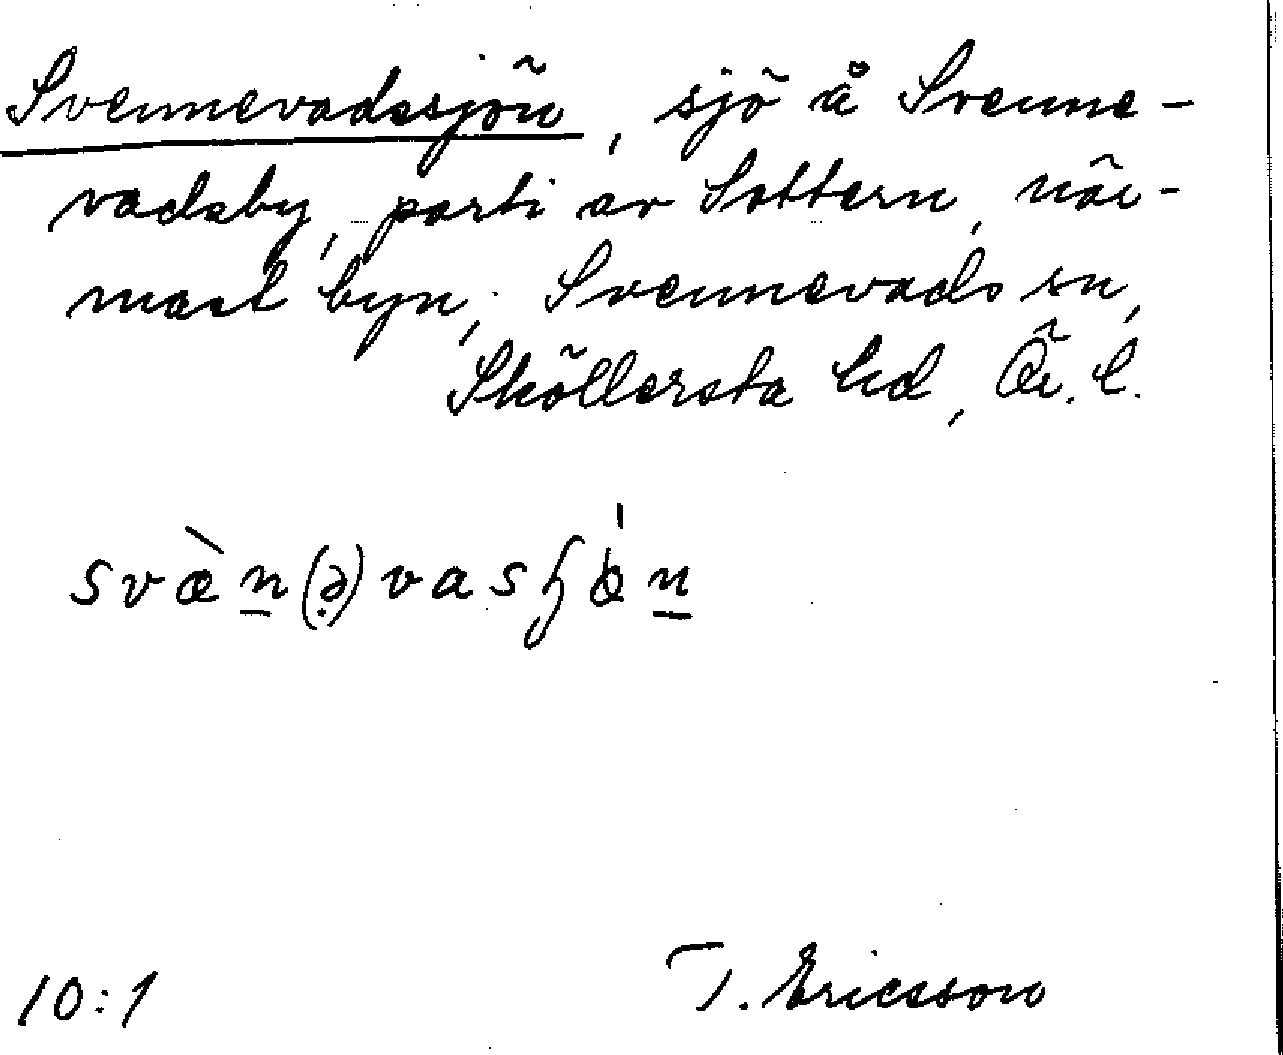 Svennevadssjön, sjö å Svenne-
vadsby, parti av Sottern, när-
mast byn; Svennevads sn,
Sköllersta hd, Ör. l.
svæ̀n̲(ə̣)vasʃɵ́n̲
10:1 T. Ericsson